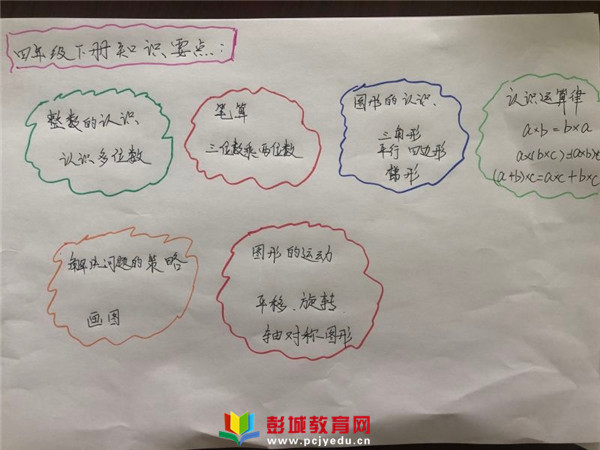 四年级下册知识要点:
整数的认识
认识多位数
笔算
三位数乘两位数
图形的认识.
三角形
平行四边形
梯形
认识运算律
a×b=b×a
a×(b×c)=(a×b)×c
(a+b)×c=a×c+b×c
解决问题的策略
画图
图形的运动
平移、旋转
轴对称图形
彭城教育网
www.pcjyedu.cn